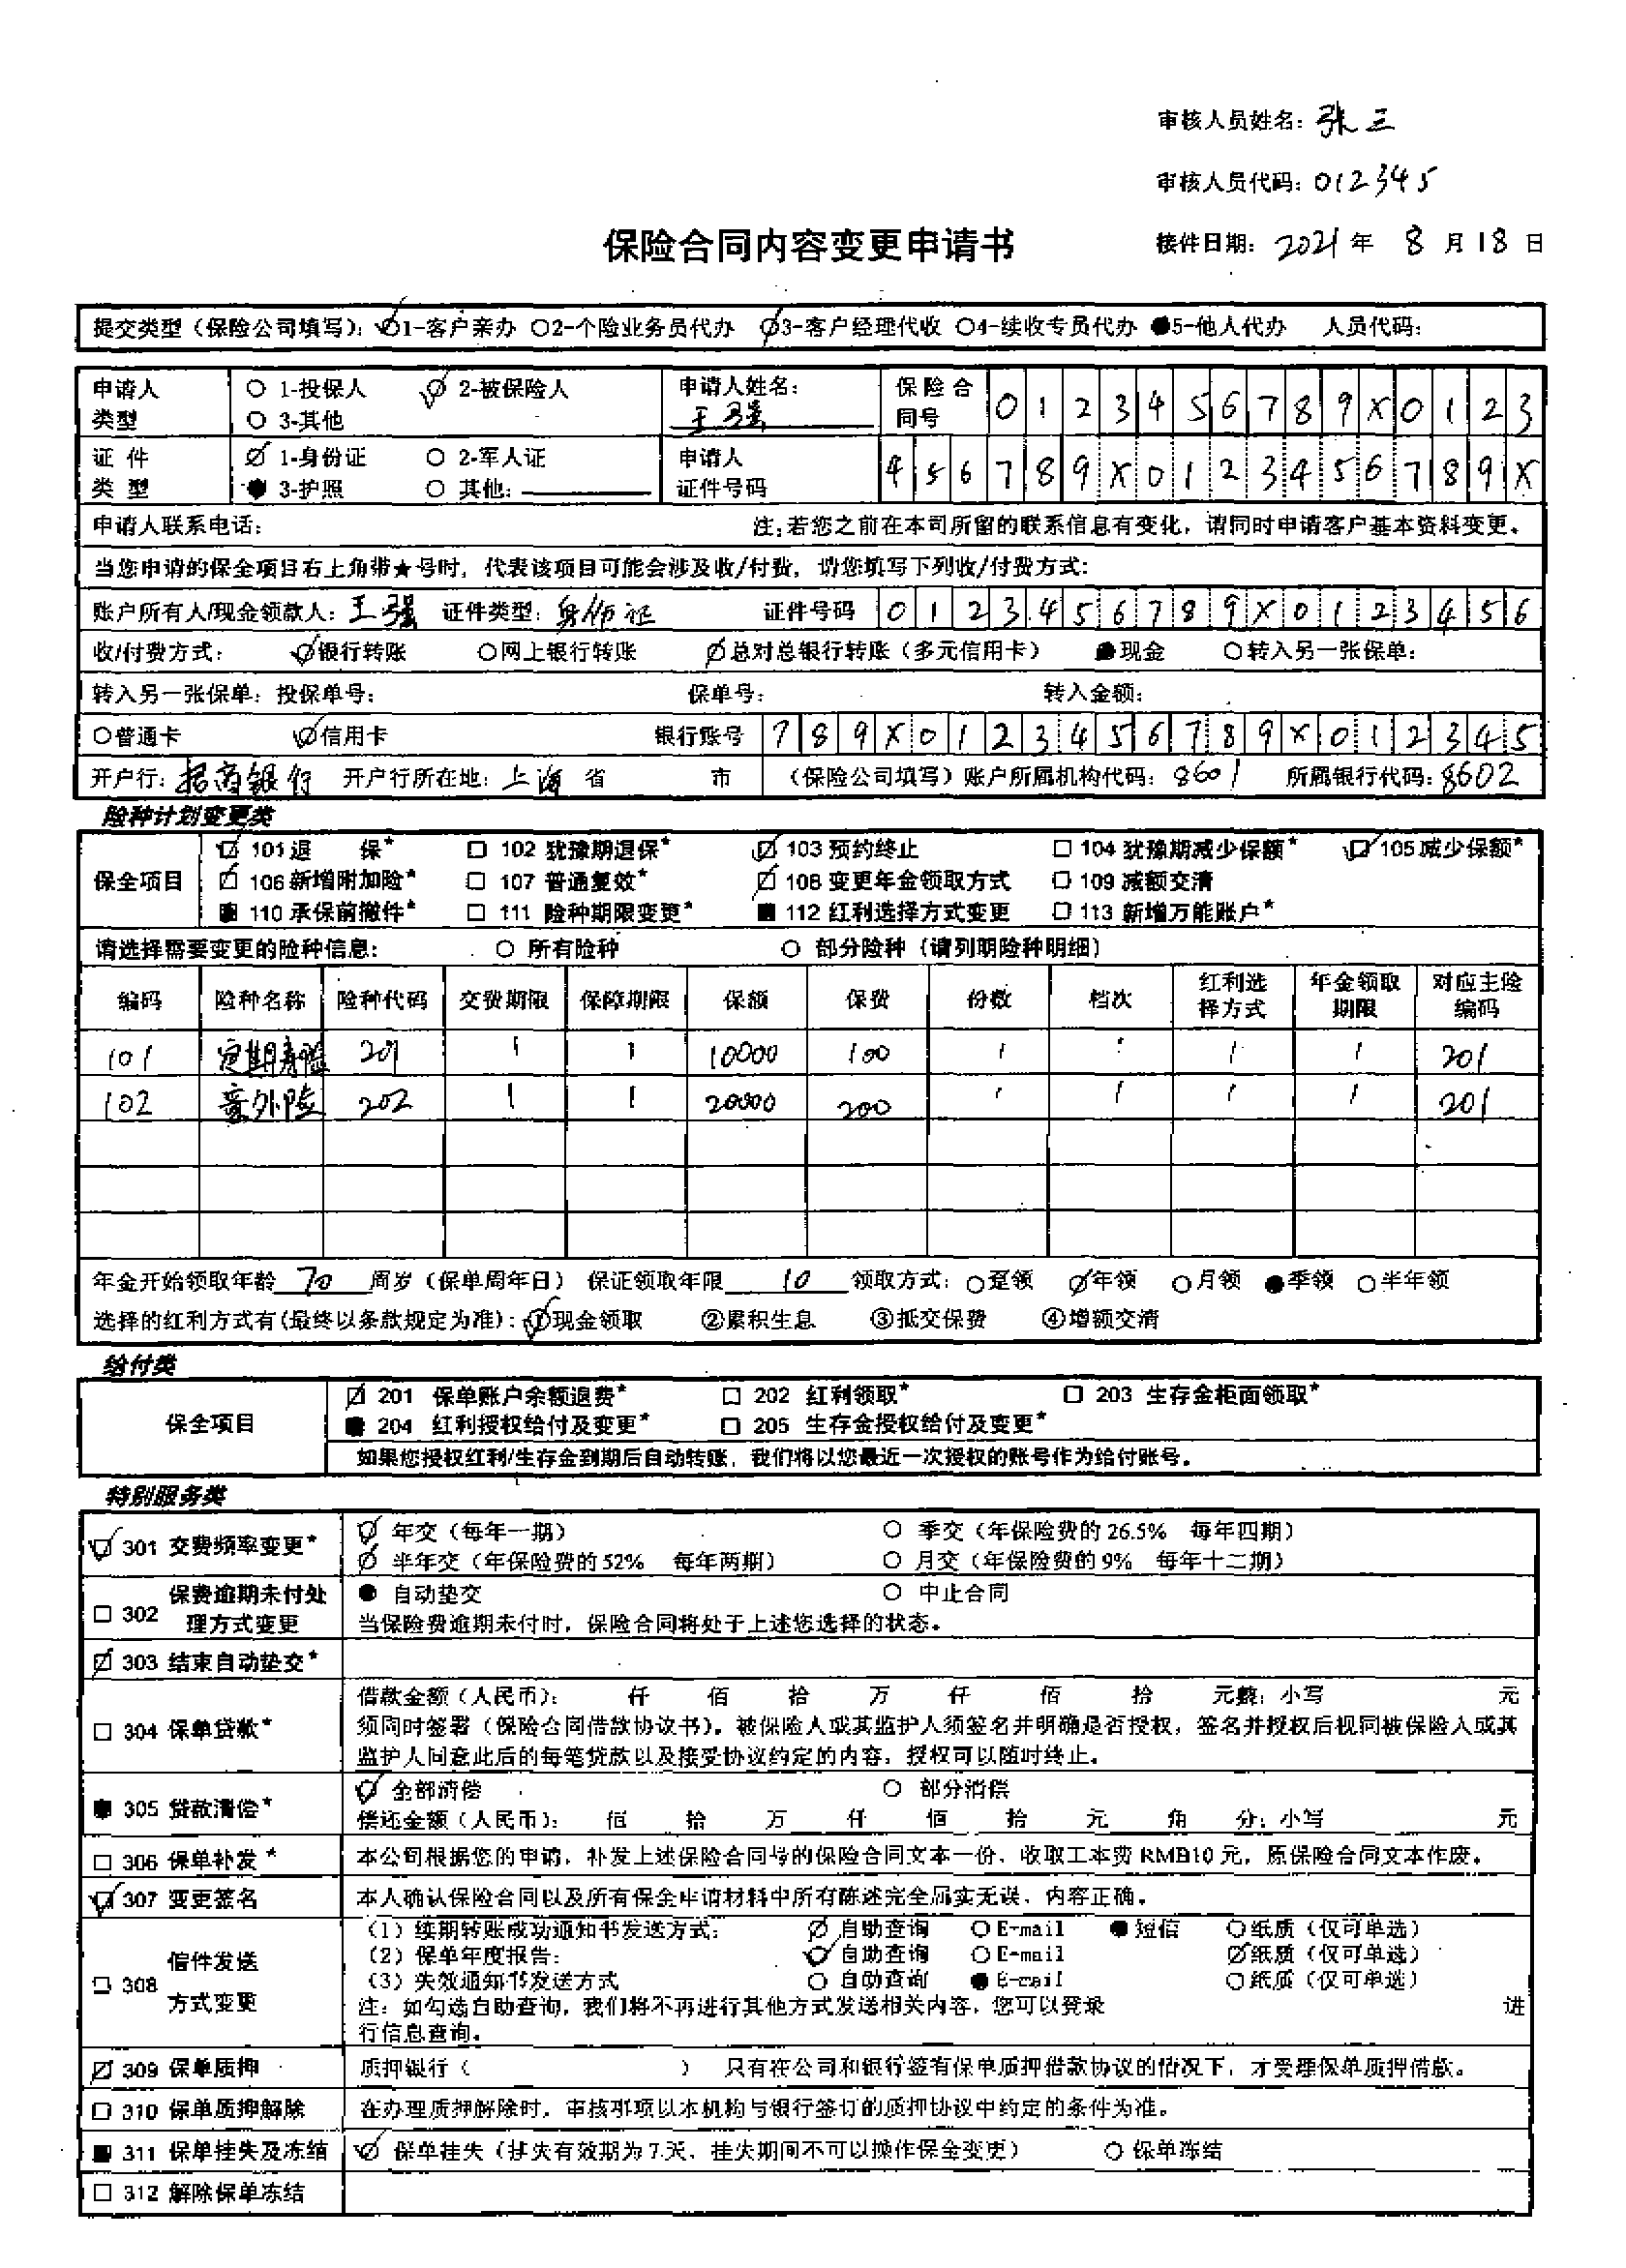 审核人员姓名：张三
审核人员代码：012345
保险合同内容变更申请书
接件日期：2021年 8月18日
提交类型（保险公司填写）：1-客户亲办 2-个险业务员代办 3-客户经理代收 4-续收专员代办 5-他人代办 人员代码：
申请人类型 1-投保人 2-被保险人 3-其他 申请人姓名：王强 保险合同号 0123456789X0123
证件类型 1-身份证 2-军人证 3-护照 其他： 申请人证件号码 456789X0123456789X
申请人联系电话： 注：若您之前在本司所留的联系信息有变化，请同时申请客户基本资料变更。
当您申请的保全项目右上角带★号时，代表该项目可能会涉及收/付费，请您填写下列收/付费方式：
账户所有人/现金领款人：王强 证件类型：身份证 证件号码 0123456789X0123456
收/付费方式： 银行转账 网上银行转账 总对总银行转账（多元信用卡） 现金 转入另一张保单：
转入另一张保单：投保单号： 保单号： 转入金额：
普通卡 信用卡 银行账号 789X0123456789X012345
开户行：招商银行 开户行所在地：上海 省 市 （保险公司填写）账户所属机构代码：8601 所属银行代码：8602
险种计划变更类
保全项目
101 退 保* 102 犹豫期退保* 103 预约终止 104 犹豫期减少保额* 105 减少保额*
106 新增附加险* 107 普通复效* 108 变更年金领取方式 109 减额交清
110 承保前撤件* 111 险种期限变更* 112 红利选择方式变更 113 新增万能账户*
请选择需要变更的险种信息： 所有险种 部分险种（请列明险种明细）
编码 险种名称 险种代码 交费期限 保障期限 保额 保费 份数 档次 红利选择方式 年金领取期限 对应主险编码
101 定期寿险 201 1 1 10000 100 / / / / 201
102 意外险 202 1 1 20000 200 / / / / 201
年金开始领取年龄 70 周岁（保单周年日） 保证领取年限 10 领取方式：趸领 年领 月领 季领 半年领
选择的红利方式有(最终以条款规定为准)：①现金领取 ②累积生息 ③抵交保费 ④增额交清
给付类
保全项目
201 保单账户余额退费* 202 红利领取* 203 生存金柜面领取*
204 红利授权给付及变更* 205 生存金授权给付及变更*
如果您授权红利/生存金到期后自动转账，我们将以您最近一次授权的账号作为给付账号。
特别服务类
301 交费频率变更* 年交（每年一期） 季交（年保险费的26.5% 每年四期）
半年交（年保险费的52% 每年两期） 月交（年保险费的9% 每年十二期）
302 保费逾期未付处理方式变更 自动垫交 中止合同
当保险费逾期未付时，保险合同将处于上述您选择的状态。
303 结束自动垫交*
304 保单贷款* 借款金额（人民币）： 仟 佰 拾 万 仟 佰 拾 元整：小写 元
须同时签署（保险合同借款协议书）。被保险人或其监护人须签名并明确是否授权，签名并授权后视同被保险人或其
监护人同意此后的每笔贷款以及接受协议约定的内容，授权可以随时终止。
305 贷款清偿* 全部清偿 部分清偿
偿还金额（人民币）： 佰 拾 万 仟 佰 拾 元 角 分：小写 元
306 保单补发* 本公司根据您的申请，补发上述保险合同号的保险合同文本一份，收取工本费RMB10元，原保险合同文本作废。
307 变更签名 本人确认保险合同以及所有保全申请材料中所有陈述完全属实无误、内容正确。
308 信件发送方式变更
（1）续期转账成功通知书发送方式： 自助查询 E-mail 短信 纸质（仅可单选）
（2）保单年度报告： 自助查询 E-mail 纸质（仅可单选）
（3）失效通知书发送方式 自助查询 E-mail 纸质（仅可单选）
注：如勾选自助查询，我们将不再进行其他方式发送相关内容，您可以登录 进
行信息查询。
309 保单质押 质押银行（ ） 只有在公司和银行签有保单质押借款协议的情况下，才受理保单质押借款。
310 保单质押解除 在办理质押解除时，审核事项以本机构与银行签订的质押协议中约定的条件为准。
311 保单挂失及冻结 保单挂失（挂失有效期为7天，挂失期间不可以操作保全变更） 保单冻结
312 解除保单冻结